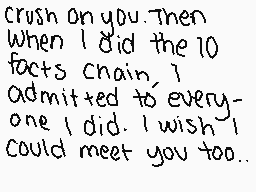 crush on you. Then
when I did the 10
facts chain, I
admitted to every-
one I did. I wish I
could meet you too..